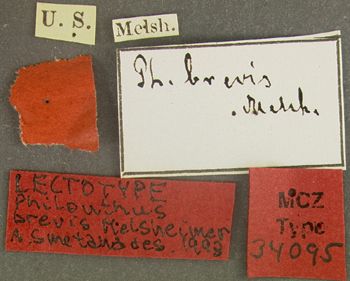 U. S.
Melsh.
Ph. brevis
Melsh.
LECTOTYPE
Philonthus
brevis Melsheimer
A. Smetana des. 1993
MCZ
Type
34095